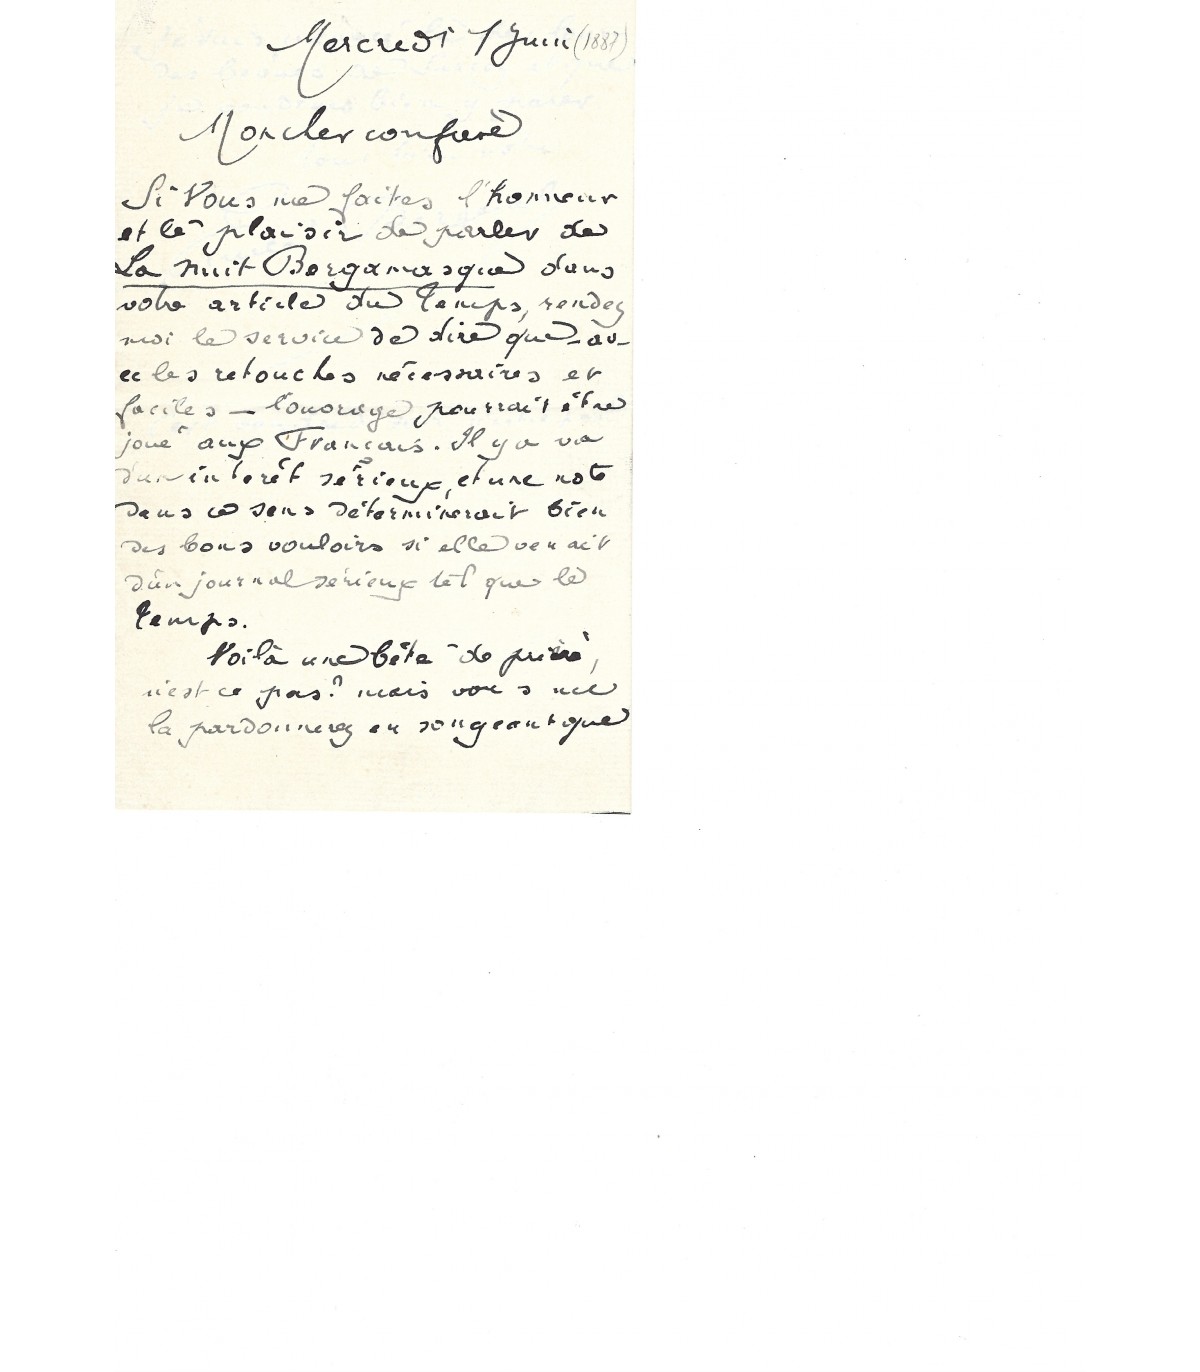 Mercredi 1 Juin (1887)
Mon cher confrère
Si Vous me faites l'honneur
et le plaisir de parler de
La nuit Bergamasque dans
votre article du Temps, rendez
moi le service de dire que - av-
ec les retouches nécessaires et
faciles — l'ouvrage pourrait être
joué aux Français. Il y a va
d'un intérêt sérieux, et une note
dans ce sens déterminerait bien
des bons vouloirs si elle venait
d'un journal sérieux tel que le
Temps.
Voilà une bête de prière,
n'est ce pas? mais vous me
la pardonnerez en songeant que